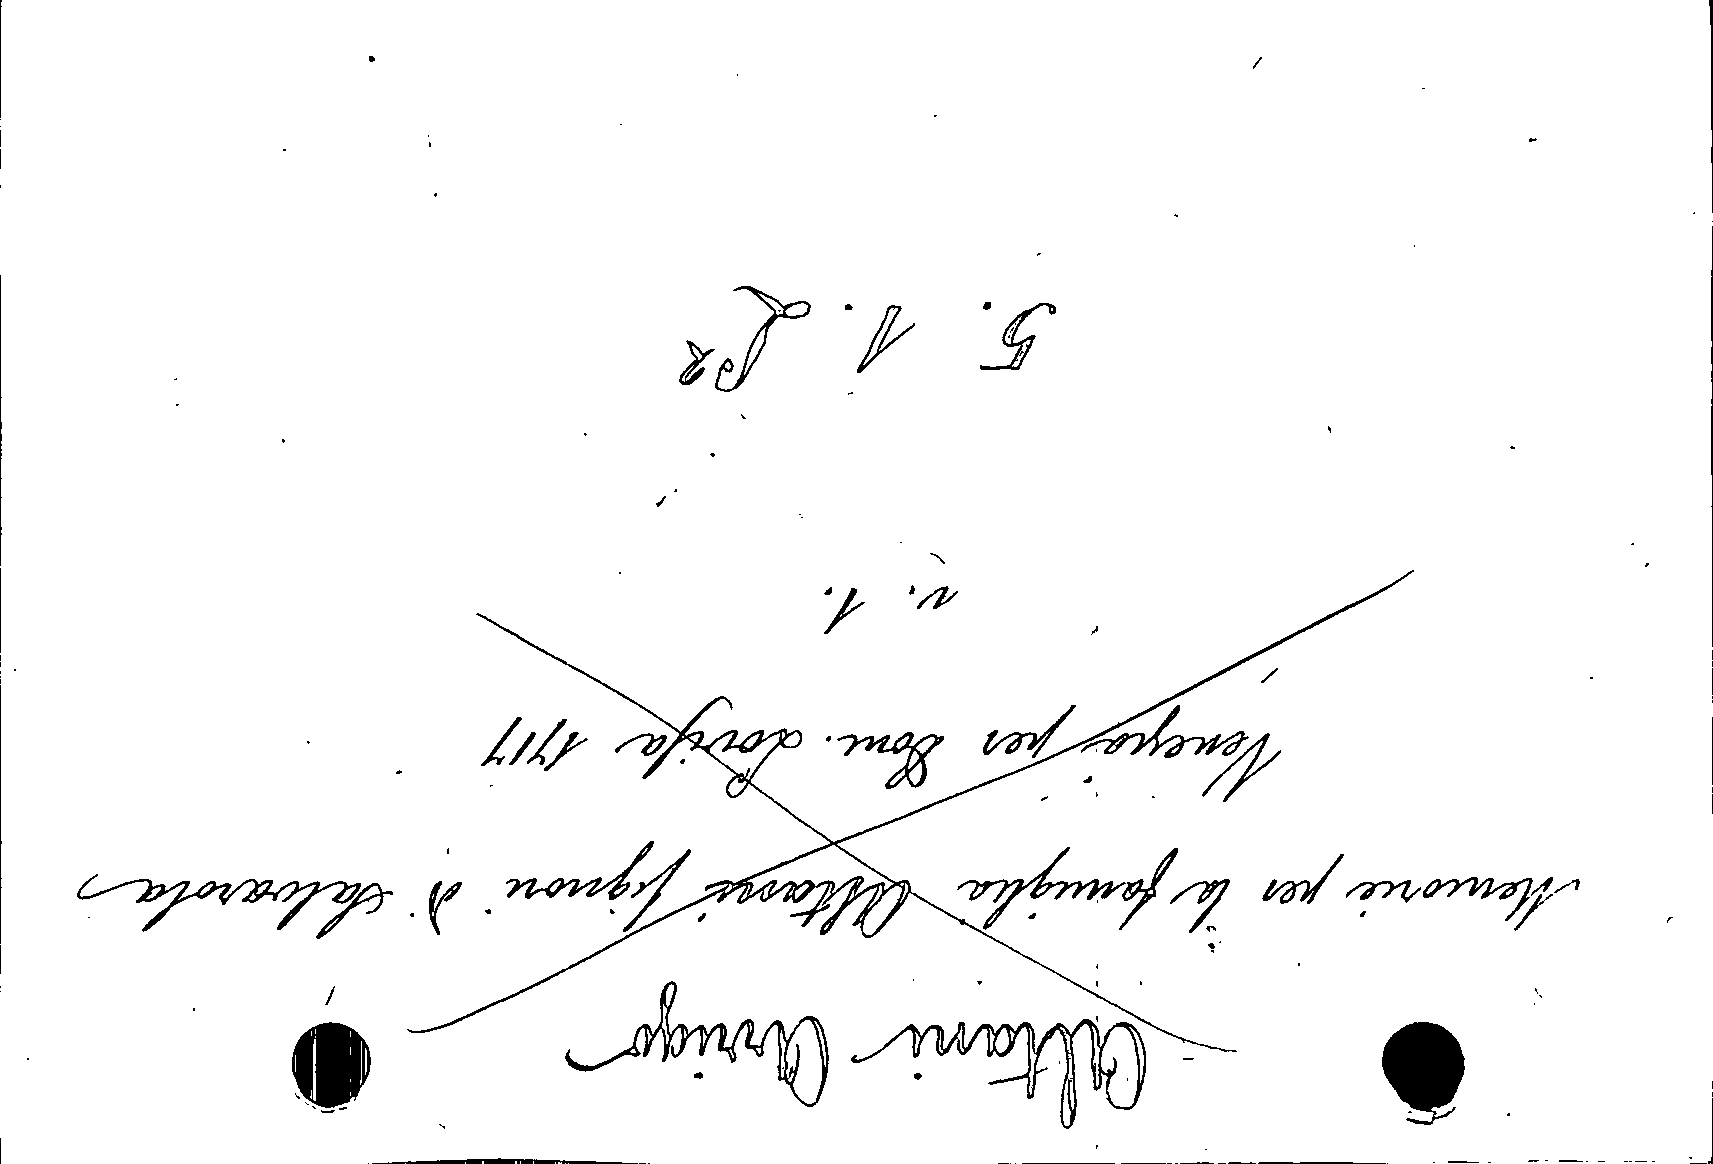 Altani Arrigo
Memorie per la famiglia Altani signori di Salvarola
Venezia per Dom. Lovisa 1717
v. 1.
5. 1. L²